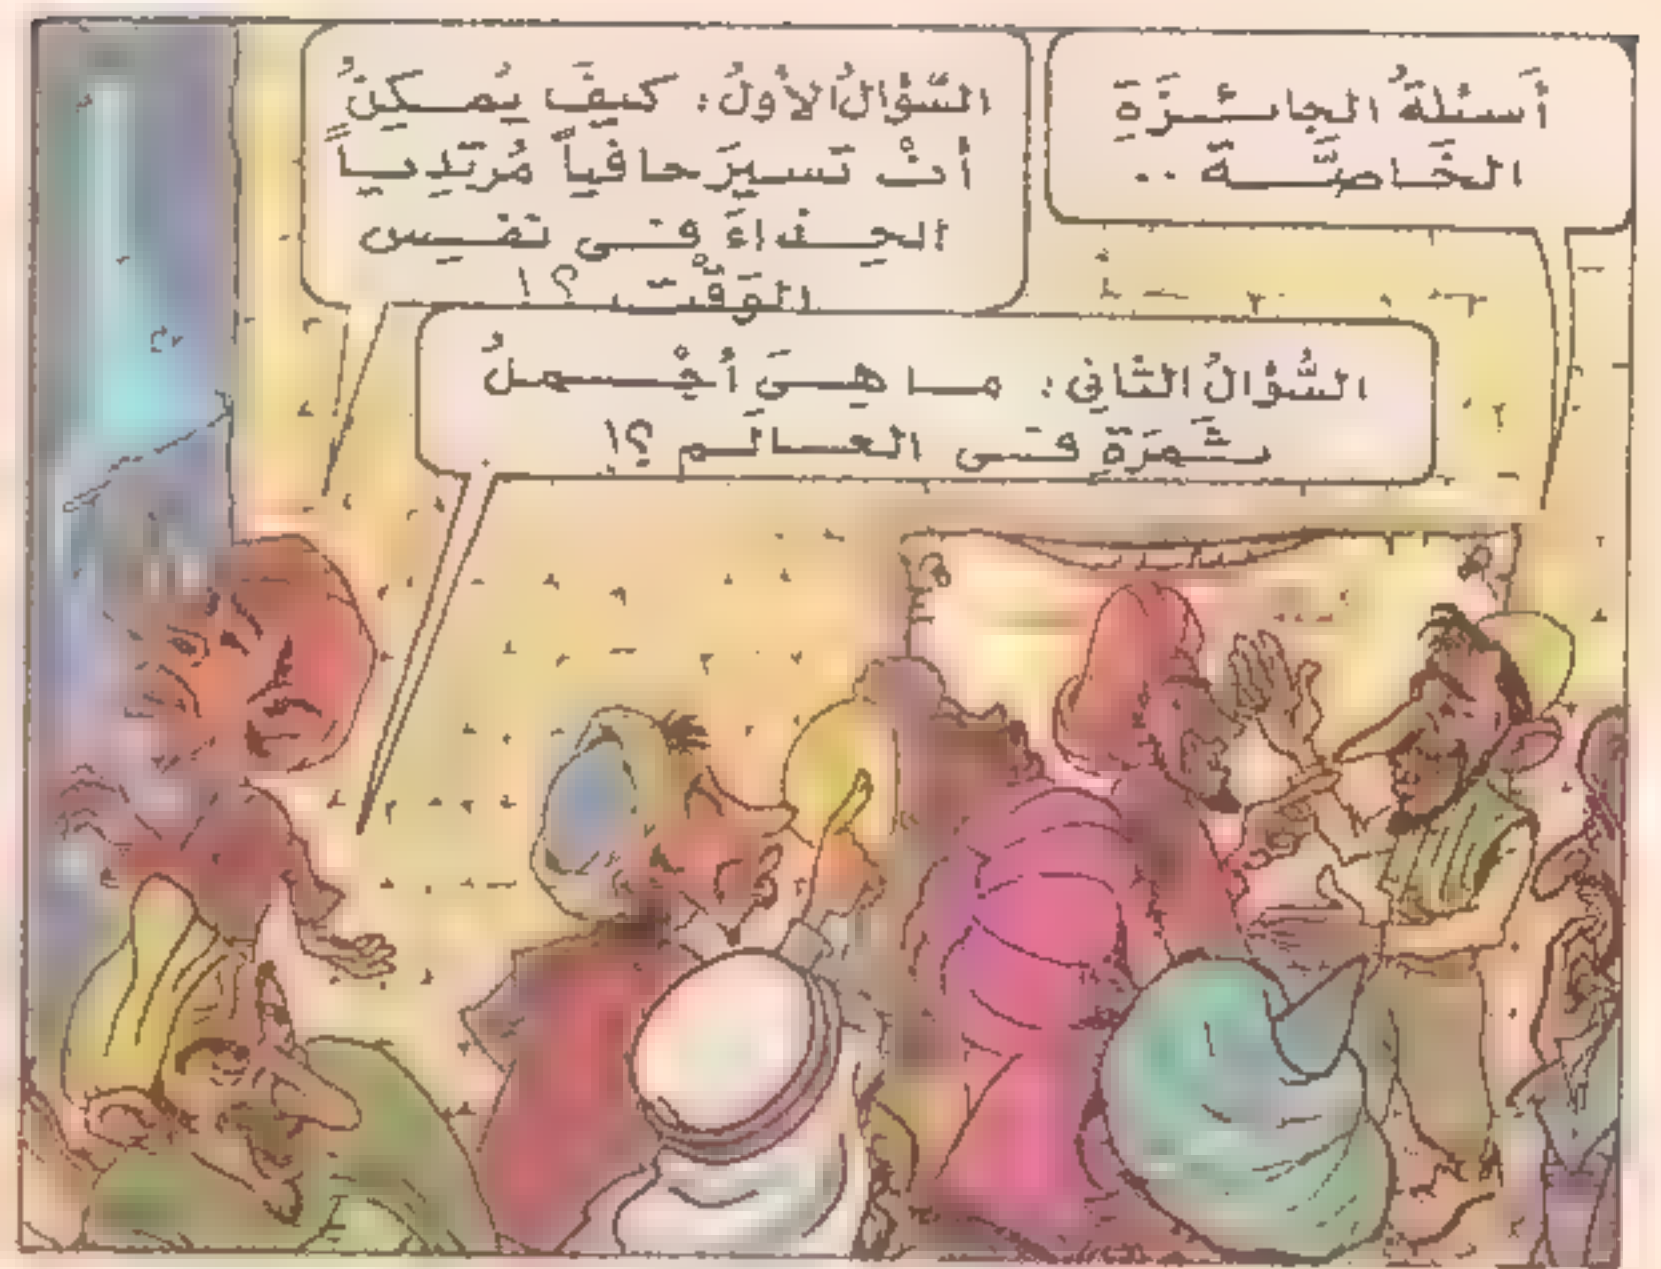 أَسئلةُ الجائـزَةِ
الخَاصَّـة ..
السّؤالُ الأولُ: كيفَ يُمـكِنُ
أنْ تَسـيرَ حافياً مُرتَدِيـاً
الحِـذاءَ فـى نَفـسِ
الوَقْتِ ؟!
السُّؤالُ الثَّانِى: مـا هِـىَ أجْـملُ
ثَـمَرَةٍ فـى العـالَم ؟!